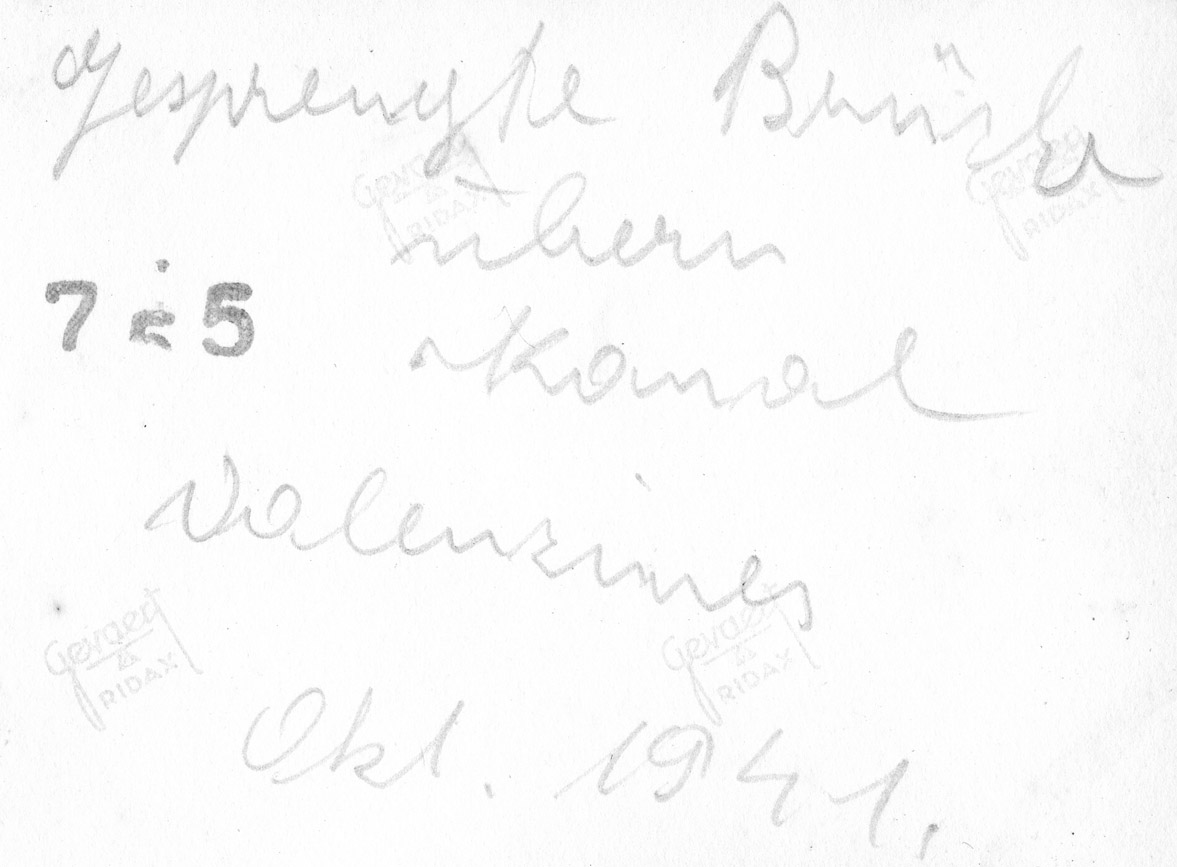 Gesprengte Brücke
übern
7 5
Kanal
Valenzines
Okt. 1941.
Gevaert
RIDAX
Gevaert
RIDAX
Gevaert
RIDAX
Gevaert
RIDAX